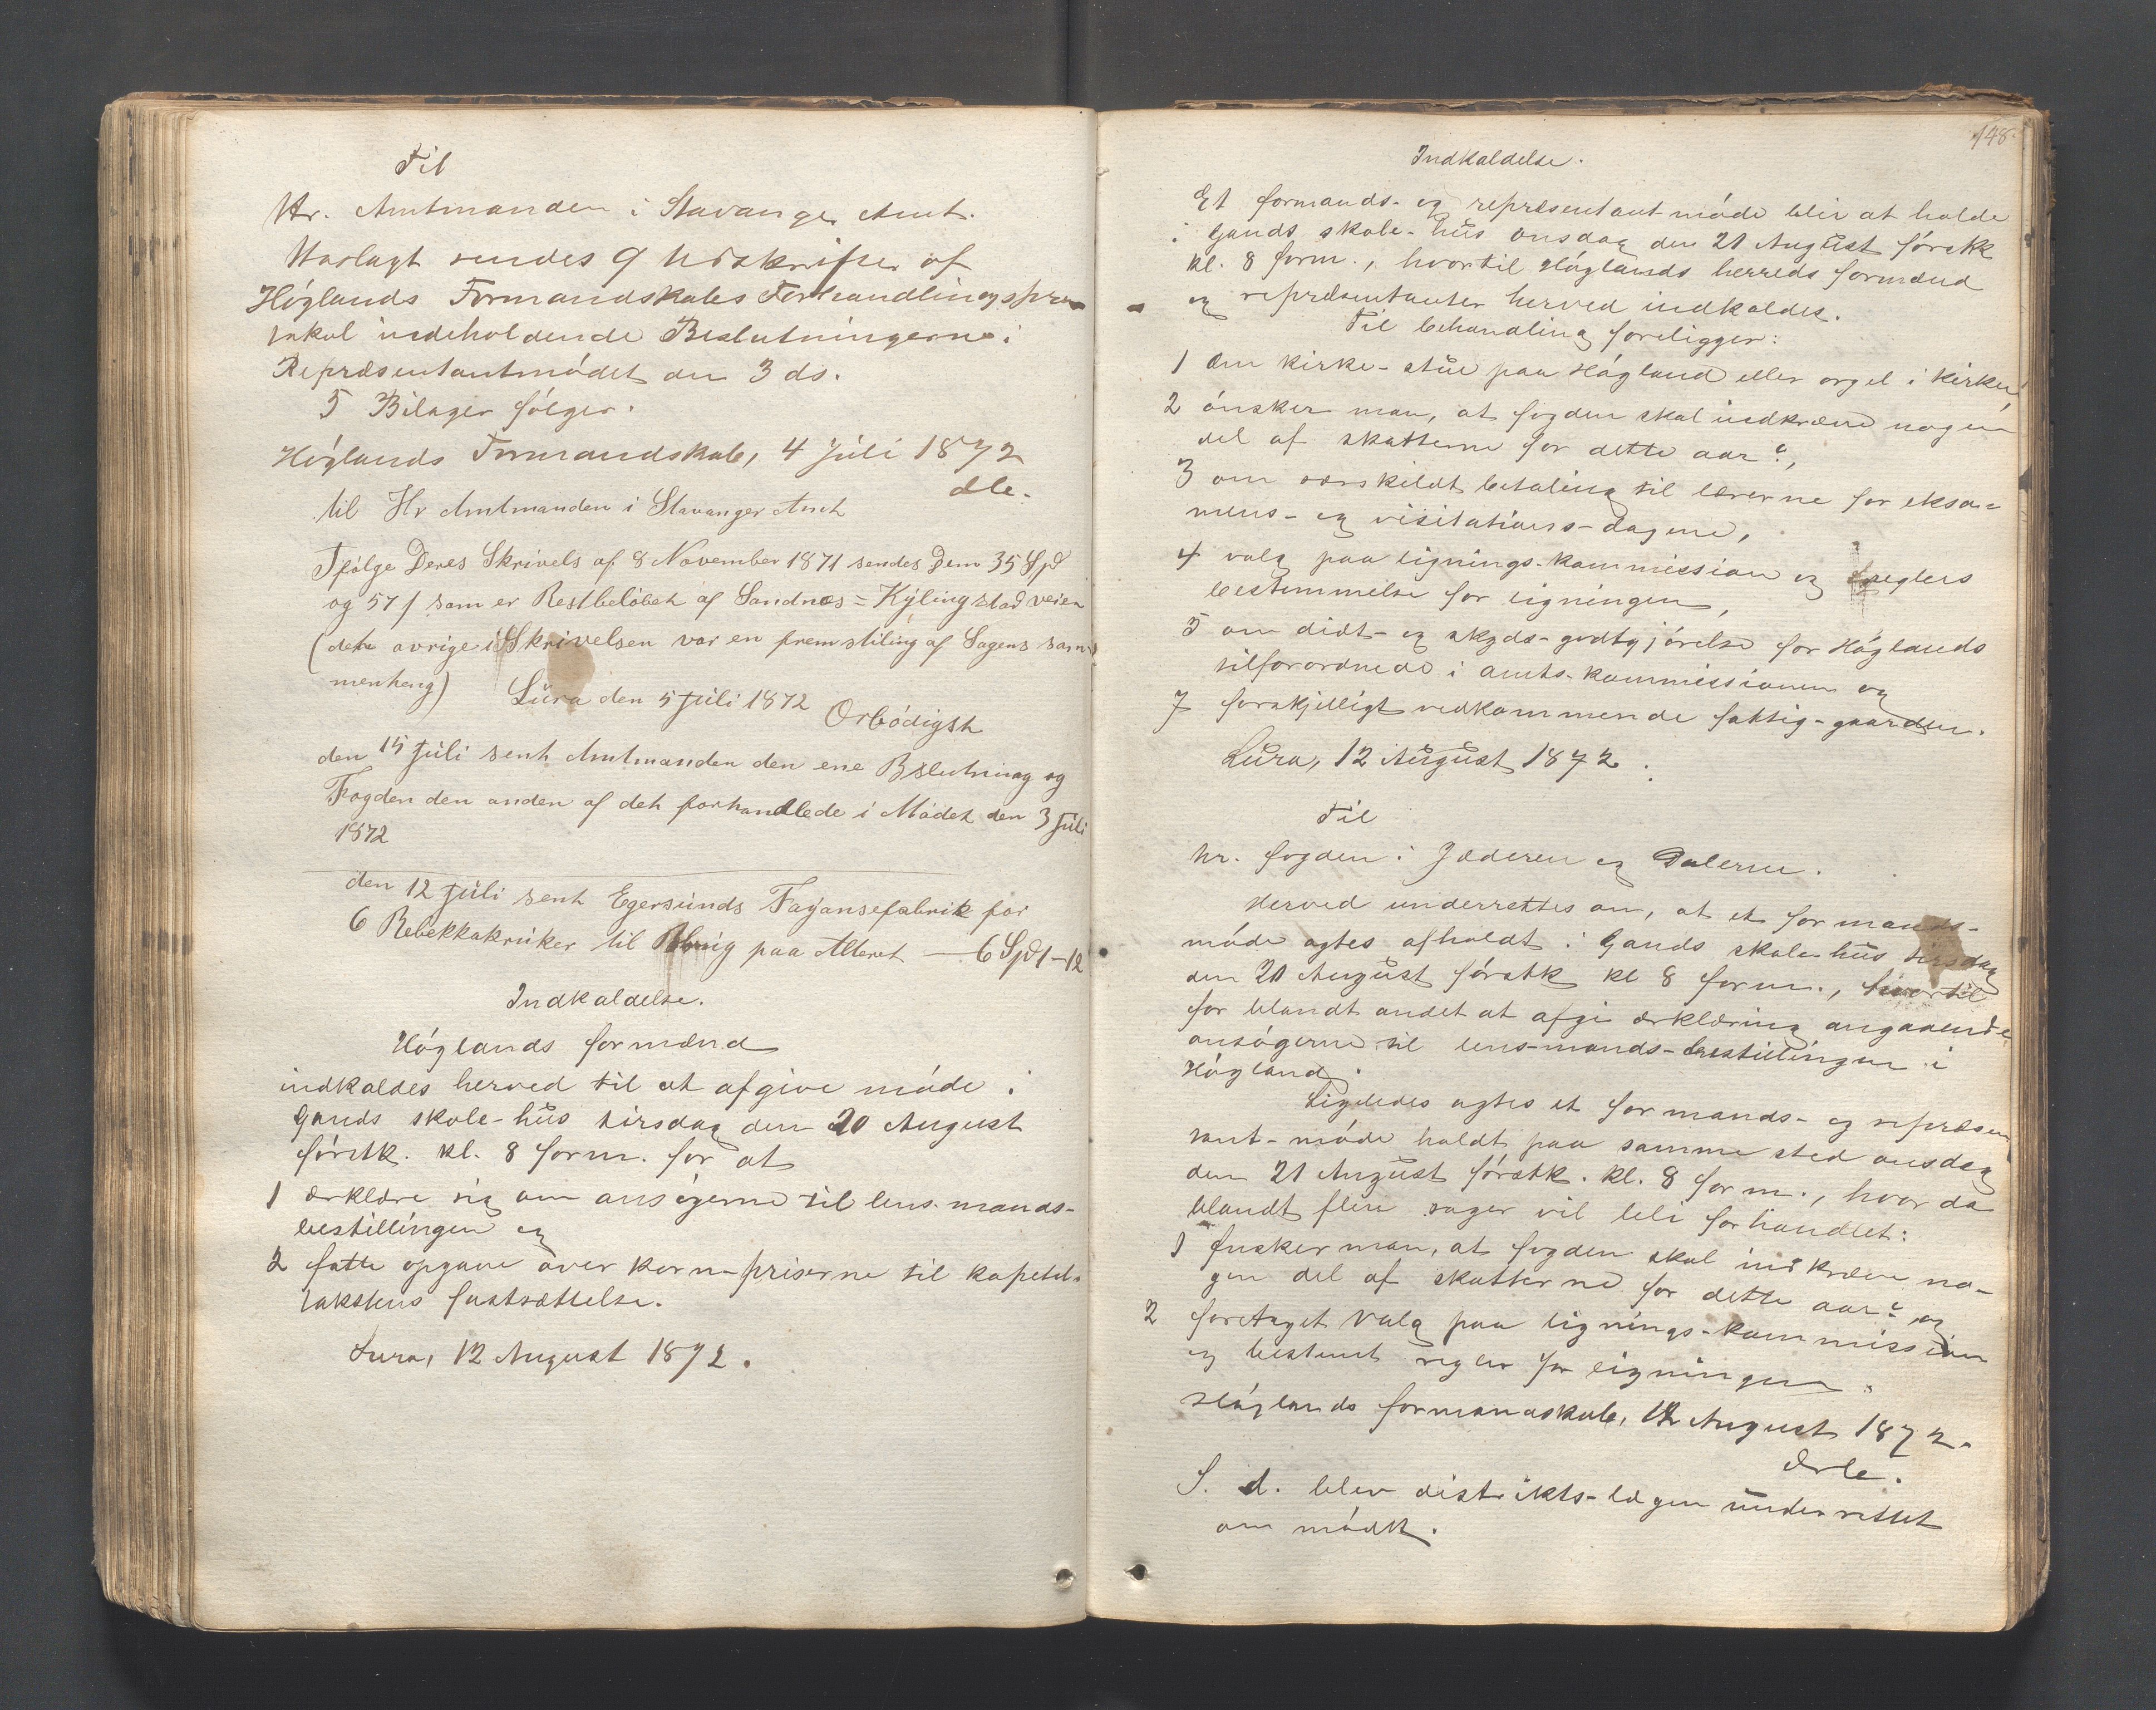 Til
Hr. Amtmanden i Stavanger Amt.
Vedlagt sendes 9 Udskrifter af
Höglands Formandskabs Forhandlingspro
tokol indeholdende Beslutningerne i
Repræsentantmödet den 3 ds.
5 Bilager fölger.
Höglands Formandskab, 4 Juli 1872
til Hr Amtmanden i Stavanger Amt
Ifølge Deres Skrivels af 8 November 1871 sendes Dem 35 Spd
og 57 s som er Restbelöbet af Sandnæs = Kylingstad veien
(det øvrige i Skrivelsen var en fremstiling af Sagens sam
menheng)
Lura den 5 Juli 1872
Ørbödigst
den 15 Juli sent Amtmanden den ene Bslutning og
Fogden den anden af det forhandlede i Mödet den 3 Juli
1872
den 12 Juli sent Egersunds Fayansefabrik for
6 Rebekkakruker til paa Alteret — 6 Spd 1-12
Indkaldelse.
Höglands formænd
indkaldes herved til at afgive möde i
Gands skole-hus tirsdag den 20 August
förstk. kl. 8 form. for at
1 ærklære sig om ansögerne til lens-mands-
bestillingen og
2 fatte opgave over korn-priserne til kapitel-
takstens fastsættelse.
Lura, 12 August 1872.
148.
Indkaldelse.
Et formands- og repræsentant möde blir at holde
i Gands skole-hus onsdag den 21 August förstk
kl. 8 form., hvortil Höglands herreds formænd
og repræsentanter herved indkaldes.
Til behandling foreligger:
1 Om kirke-stue paa Högland eller orgel i kirken,
2 önsker man, at fogden skal indkræve nogen
del af skatterne for dette aar?,
3 om særskildt betaling til lærerne for eksa-
mens- og visitations-dagene,
4 valg paa lignings-kommission og reglers
bestemmelse for ligningen,
5 om diæt- og skyds-godtgjörelse for Höglands
tilforordnede i amts-kommissionen og
7 forskjelligt vedkommende fattig-gaarden.
Lura, 12 August 1872.
Til
hr. fogden i Jæderen og Dalerne.
Herved underrettes om, at et formands-
möde agtes afholdt i Gands skole-hus tirsdag
den 20 August förstk kl 8 form., hvortil
for blandt andet at afgi ærklæring angaaende
ansögerne til lens-mands-bestillingen i
Högland.
Ligeledes agtes et formands- og repræsen
tant-möde holdt paa samme sted onsdag
den 21 August förstk. kl. 8 form., hvor da
blandt flere sager vil bli forhandlet:
1 önsker man, at fogden skal indkræve no-
gen del af skatterne for dette aar? og
2 foretaget valg paa lignings-kommission
og bestemt regler for ligningen.
Höglands formandskab, 12 August 1872.
S. d. blev distrikts-lægen underrettet
om mödet.